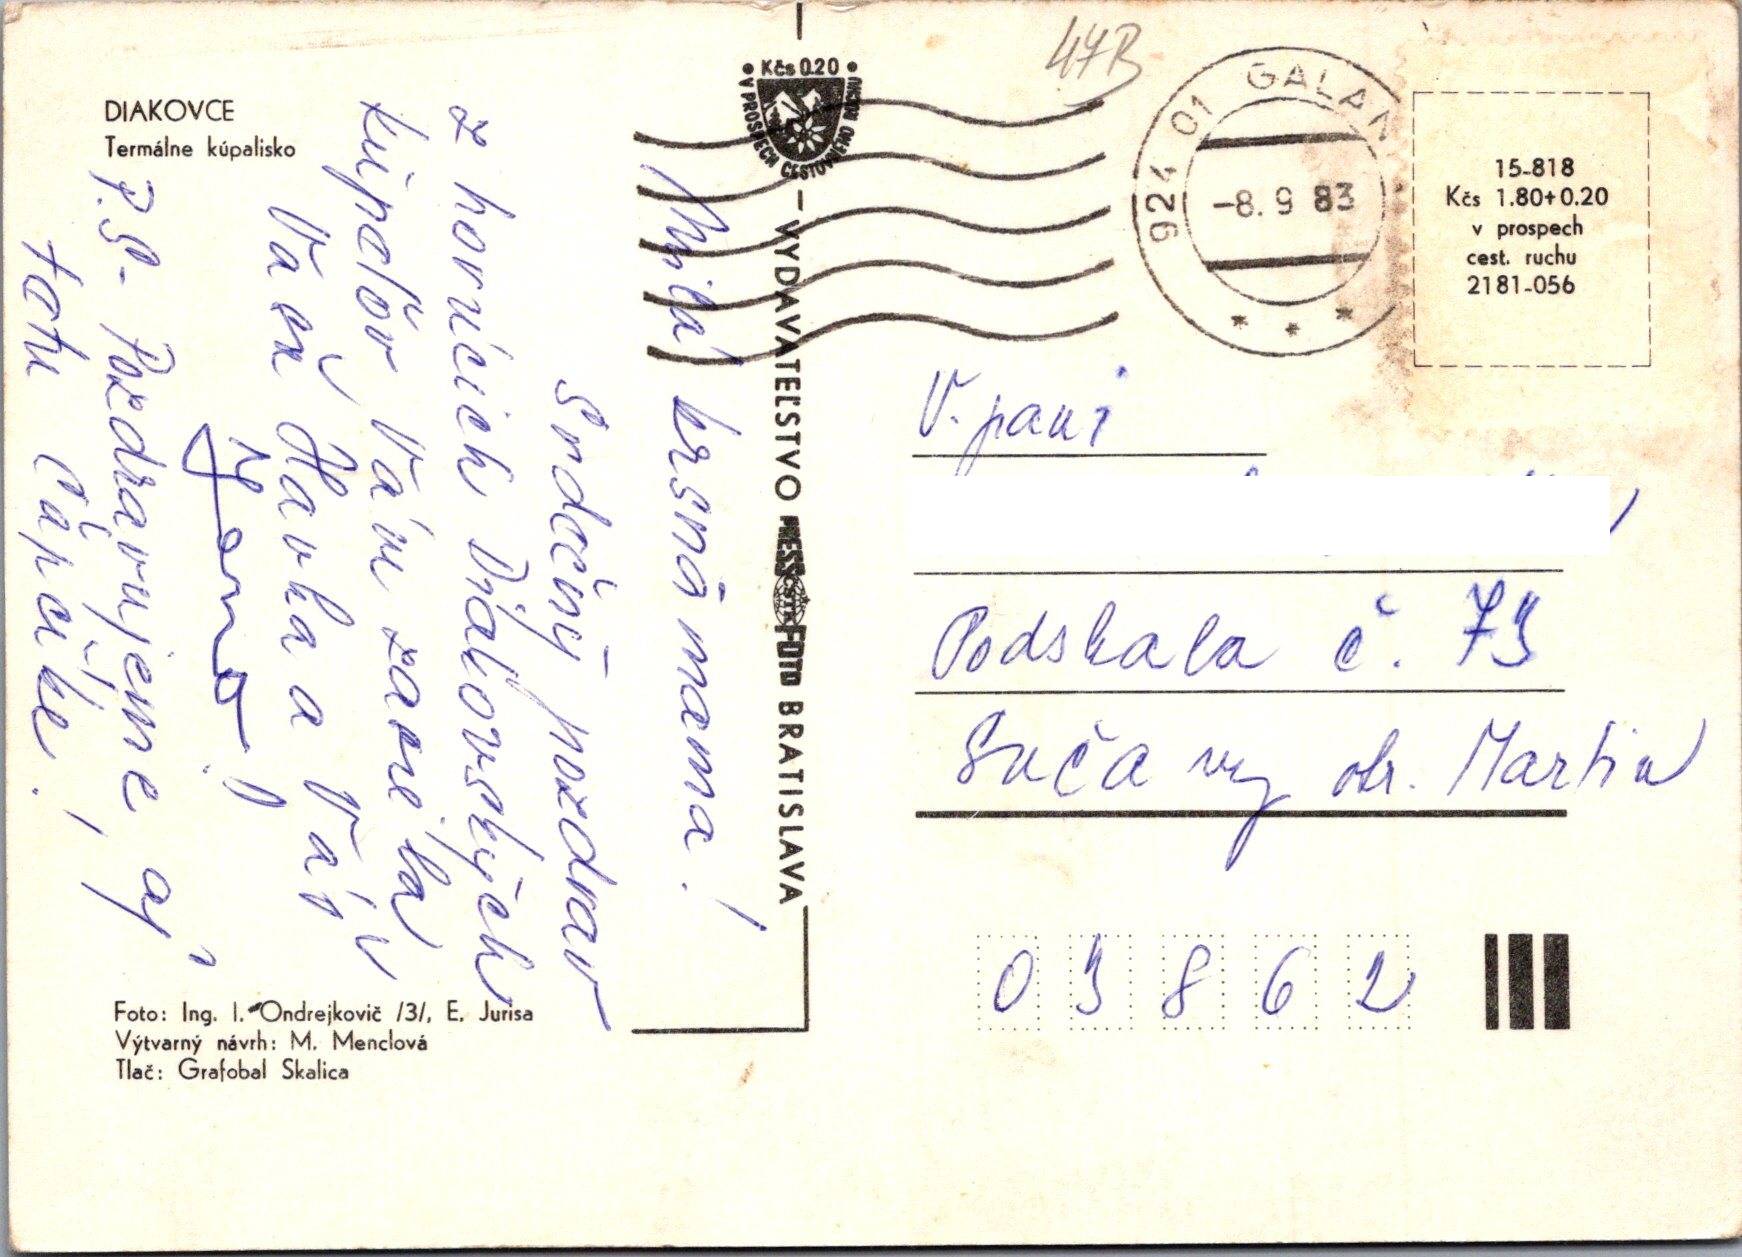 DIAKOVCE
Termálne kúpalisko
Milá krsná mama!
Srdečný pozdrav
z horúcich Diakovských
kúpeľov Vám zasiela
Vaša Havka a Váš
Jano!
P.S. Pozdravujeme aj
tetu Cápičke!
Foto: Ing. I. Ondrejkovič /3/, E. Jurisa
Výtvarný návrh: M. Menclová
Tlač: Grafobal Skalica
Kčs 0.20
V PROSPECH CESTOVNÉHO RUCHU
VYDAVATEĽSTVO PRESSFOTO BRATISLAVA
ČSTK
47B
924 01 GALAN
-8. 9 83
15-818
Kčs 1.80+0.20
v prospech
cest. ruchu
2181-056
V. pani
Podskala č. 73
Suča okr. Martin
03862